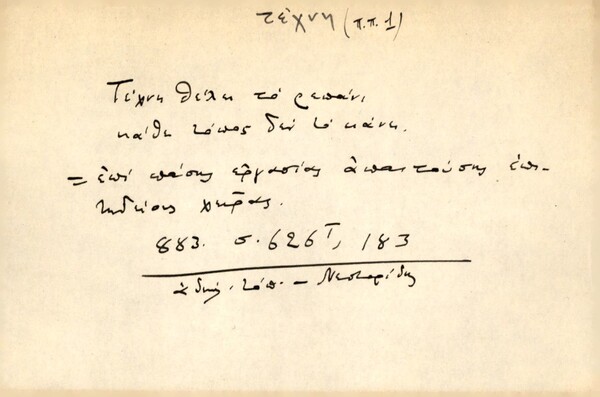 τέχνη (π.π. 1)
Τέχνη θέλει το ρεπάνι,
κάθε τόπος δεν το κάνει.
= ἐπί πάσης ἐργασίας ἀπαιτούσης ἐπι-
τηδείους χεῖρας.
883. σ. 626 Γ, 183
ἀδήλ. τόπ. - Νεστορίδης